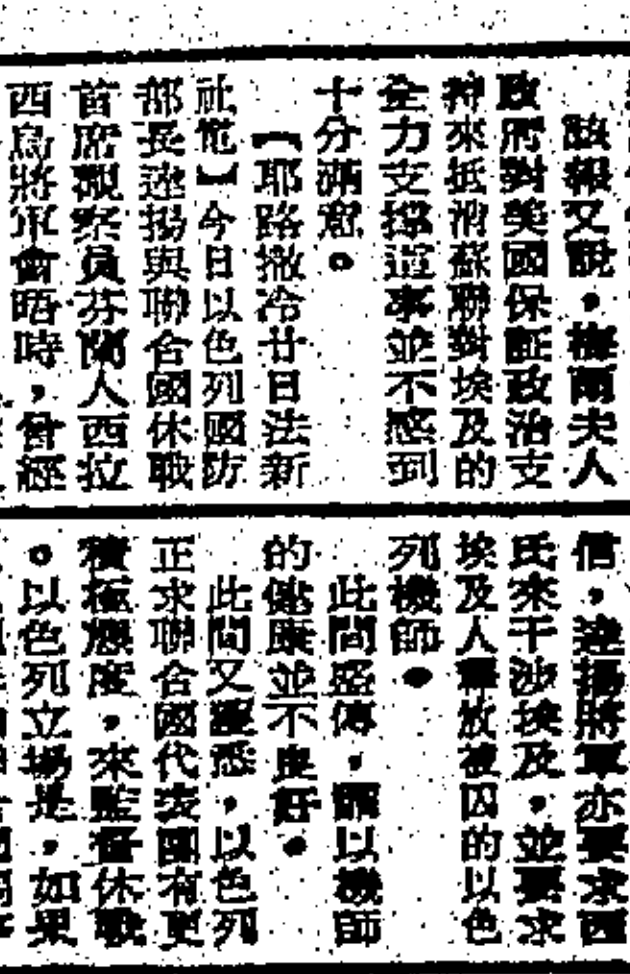 該報又說，梅爾夫人
政府對美國保証政治支
持來抵消蘇聯對埃及的
全力支撐這事並不感到
十分滿意。
【耶路撒冷廿日法新
社電】今日以色列國防
部長達揚與聯合國休戰
首席觀察員芬蘭人西拉
西烏將軍會晤時，曾經
信，達揚將軍亦要求西
氏來干涉埃及，並要求
埃及人釋放被囚的以色
列機師。
此間盛傳，謂以機師
的健康並不良好。
此間又獲悉，以色列
正求聯合國代表團有更
積極態度，來監督休戰
。以色列立場是，如果